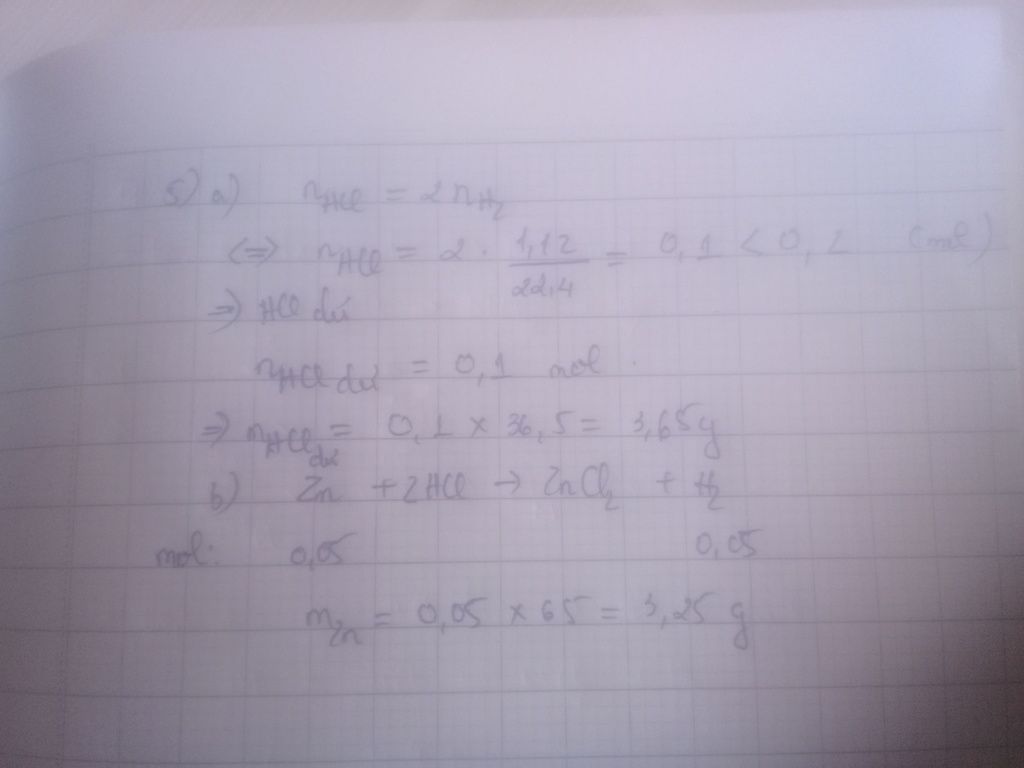 5) a) nHCl = 2nH2
<=> nHCl = 2 . 1,12/22,4 = 0,1 < 0,2 (mol)
=> HCl dư
nHCl dư = 0,1 mol.
=> mHCl dư = 0,1 × 36,5 = 3,65g
b) Zn + 2HCl → ZnCl2 + H2
mol: 0,05 0,05
mZn = 0,05 × 65 = 3,25 g